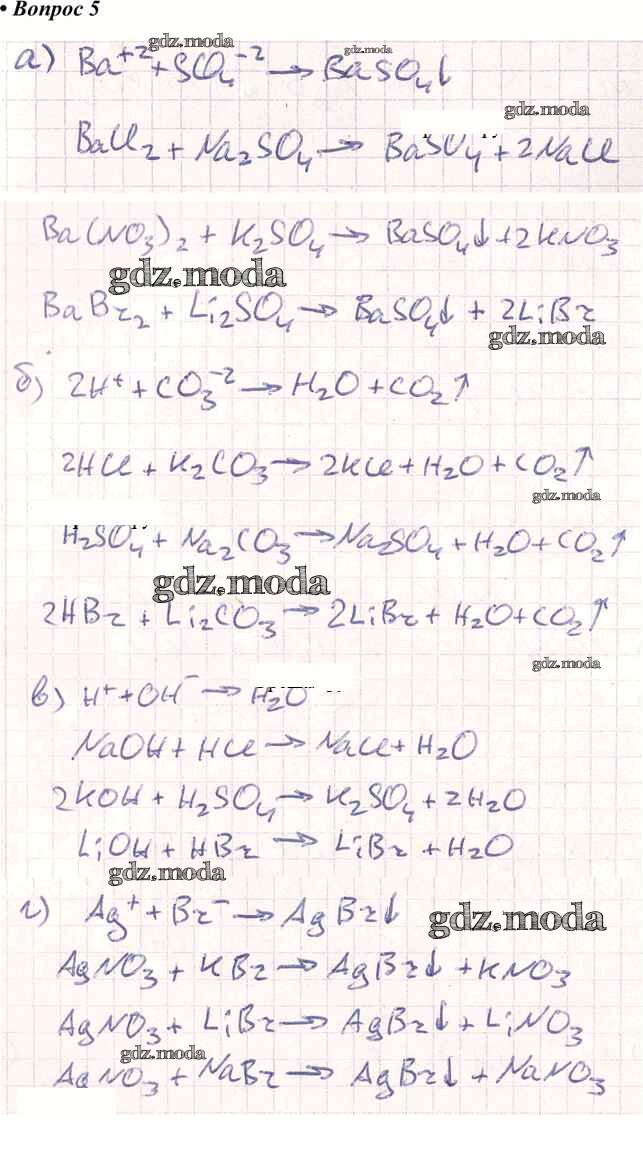 • Вопрос 5
gdz.moda
gdz.moda
а) Ba⁺² + SO₄⁻² → BaSO₄↓
gdz.moda
BaCl₂ + Na₂SO₄ → BaSO₄ + 2NaCl
Ba(NO₃)₂ + K₂SO₄ → BaSO₄↓ + 2KNO₃
gdz.moda
BaBr₂ + Li₂SO₄ → BaSO₄↓ + 2LiBr
gdz.moda
б) 2H⁺ + CO₃⁻² → H₂O + CO₂↑
2HCl + K₂CO₃ → 2KCl + H₂O + CO₂↑
gdz.moda
H₂SO₄ + Na₂CO₃ → Na₂SO₄ + H₂O + CO₂↑
gdz.moda
2HBr + Li₂CO₃ → 2LiBr + H₂O + CO₂↑
gdz.moda
в) H⁺ + OH⁻ → H₂O
NaOH + HCl → NaCl + H₂O
2KOH + H₂SO₄ → K₂SO₄ + 2H₂O
LiOH + HBr → LiBr + H₂O
gdz.moda
г) Ag⁺ + Br⁻ → AgBr↓
gdz.moda
AgNO₃ + KBr → AgBr↓ + KNO₃
AgNO₃ + LiBr → AgBr↓ + LiNO₃
gdz.moda
AgNO₃ + NaBr → AgBr↓ + NaNO₃